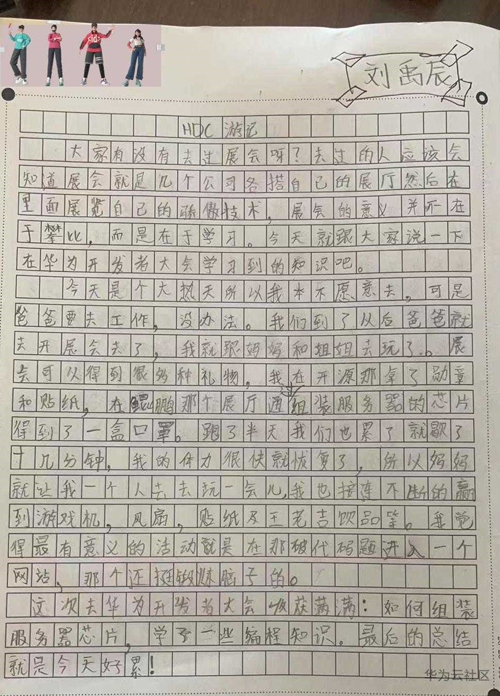 刘禹辰
HDC 游记
大家有没有去过展会呀?去过的人应该会
知道展会就是几个公司各搭自己的展厅然后在
里面展览自己的技术,展会的意义并不在
于攀比,而是在于学习。今天就跟大家说一下
在华为开发者大会学习到的知识吧。
今天是个大热天所以我本不愿意去,可是
爸爸要去工作,没办法。我们到了以后爸爸就
去开展会去了,我就跟妈妈和姐姐去玩了。展
会可以得到很多种礼物,我在开源那拿了勋章
和贴纸,在鲲鹏那个展厅通组装服务器的芯片
得到了一盒口罩。跟了半天我们也累了就歇了
十几分钟,我的体力很快就恢复了,所以妈妈
就让我一个人去去玩一会儿,我也接连不断的赢
到游戏机,风扇,贴纸及王老吉饮品等。我觉
得最有意义的活动就是在那破代码题进入一个
网站,那个还挺锻炼脑子的。
这次去华为开发者大会收获满满:如何组装
服务器芯片,学了一些编程知识。最后的总结
就是今天好累!
华为云社区